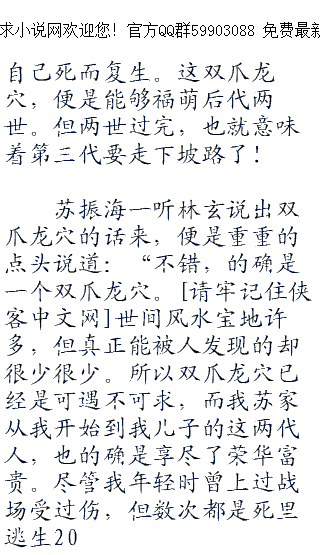 求小说网欢迎您！官方QQ群59903088 免费最新
自己死而复生。这双爪龙
穴，便是能够福萌后代两
世。但两世过完，也就意味
着第三代要走下坡路了！
苏振海一听林玄说出双
爪龙穴的话来，便是重重的
点头说道：“不错，的确是
一个双爪龙穴。[请牢记住侠
客中文网]世间风水宝地许
多，但真正能被人发现的却
很少很少。所以双爪龙穴已
经是可遇不可求，而我苏家
从我开始到我儿子的这两代
人，也的确是享尽了荣华富
贵。尽管我年轻时曾上过战
场受过伤，但数次都是死里
逃生20